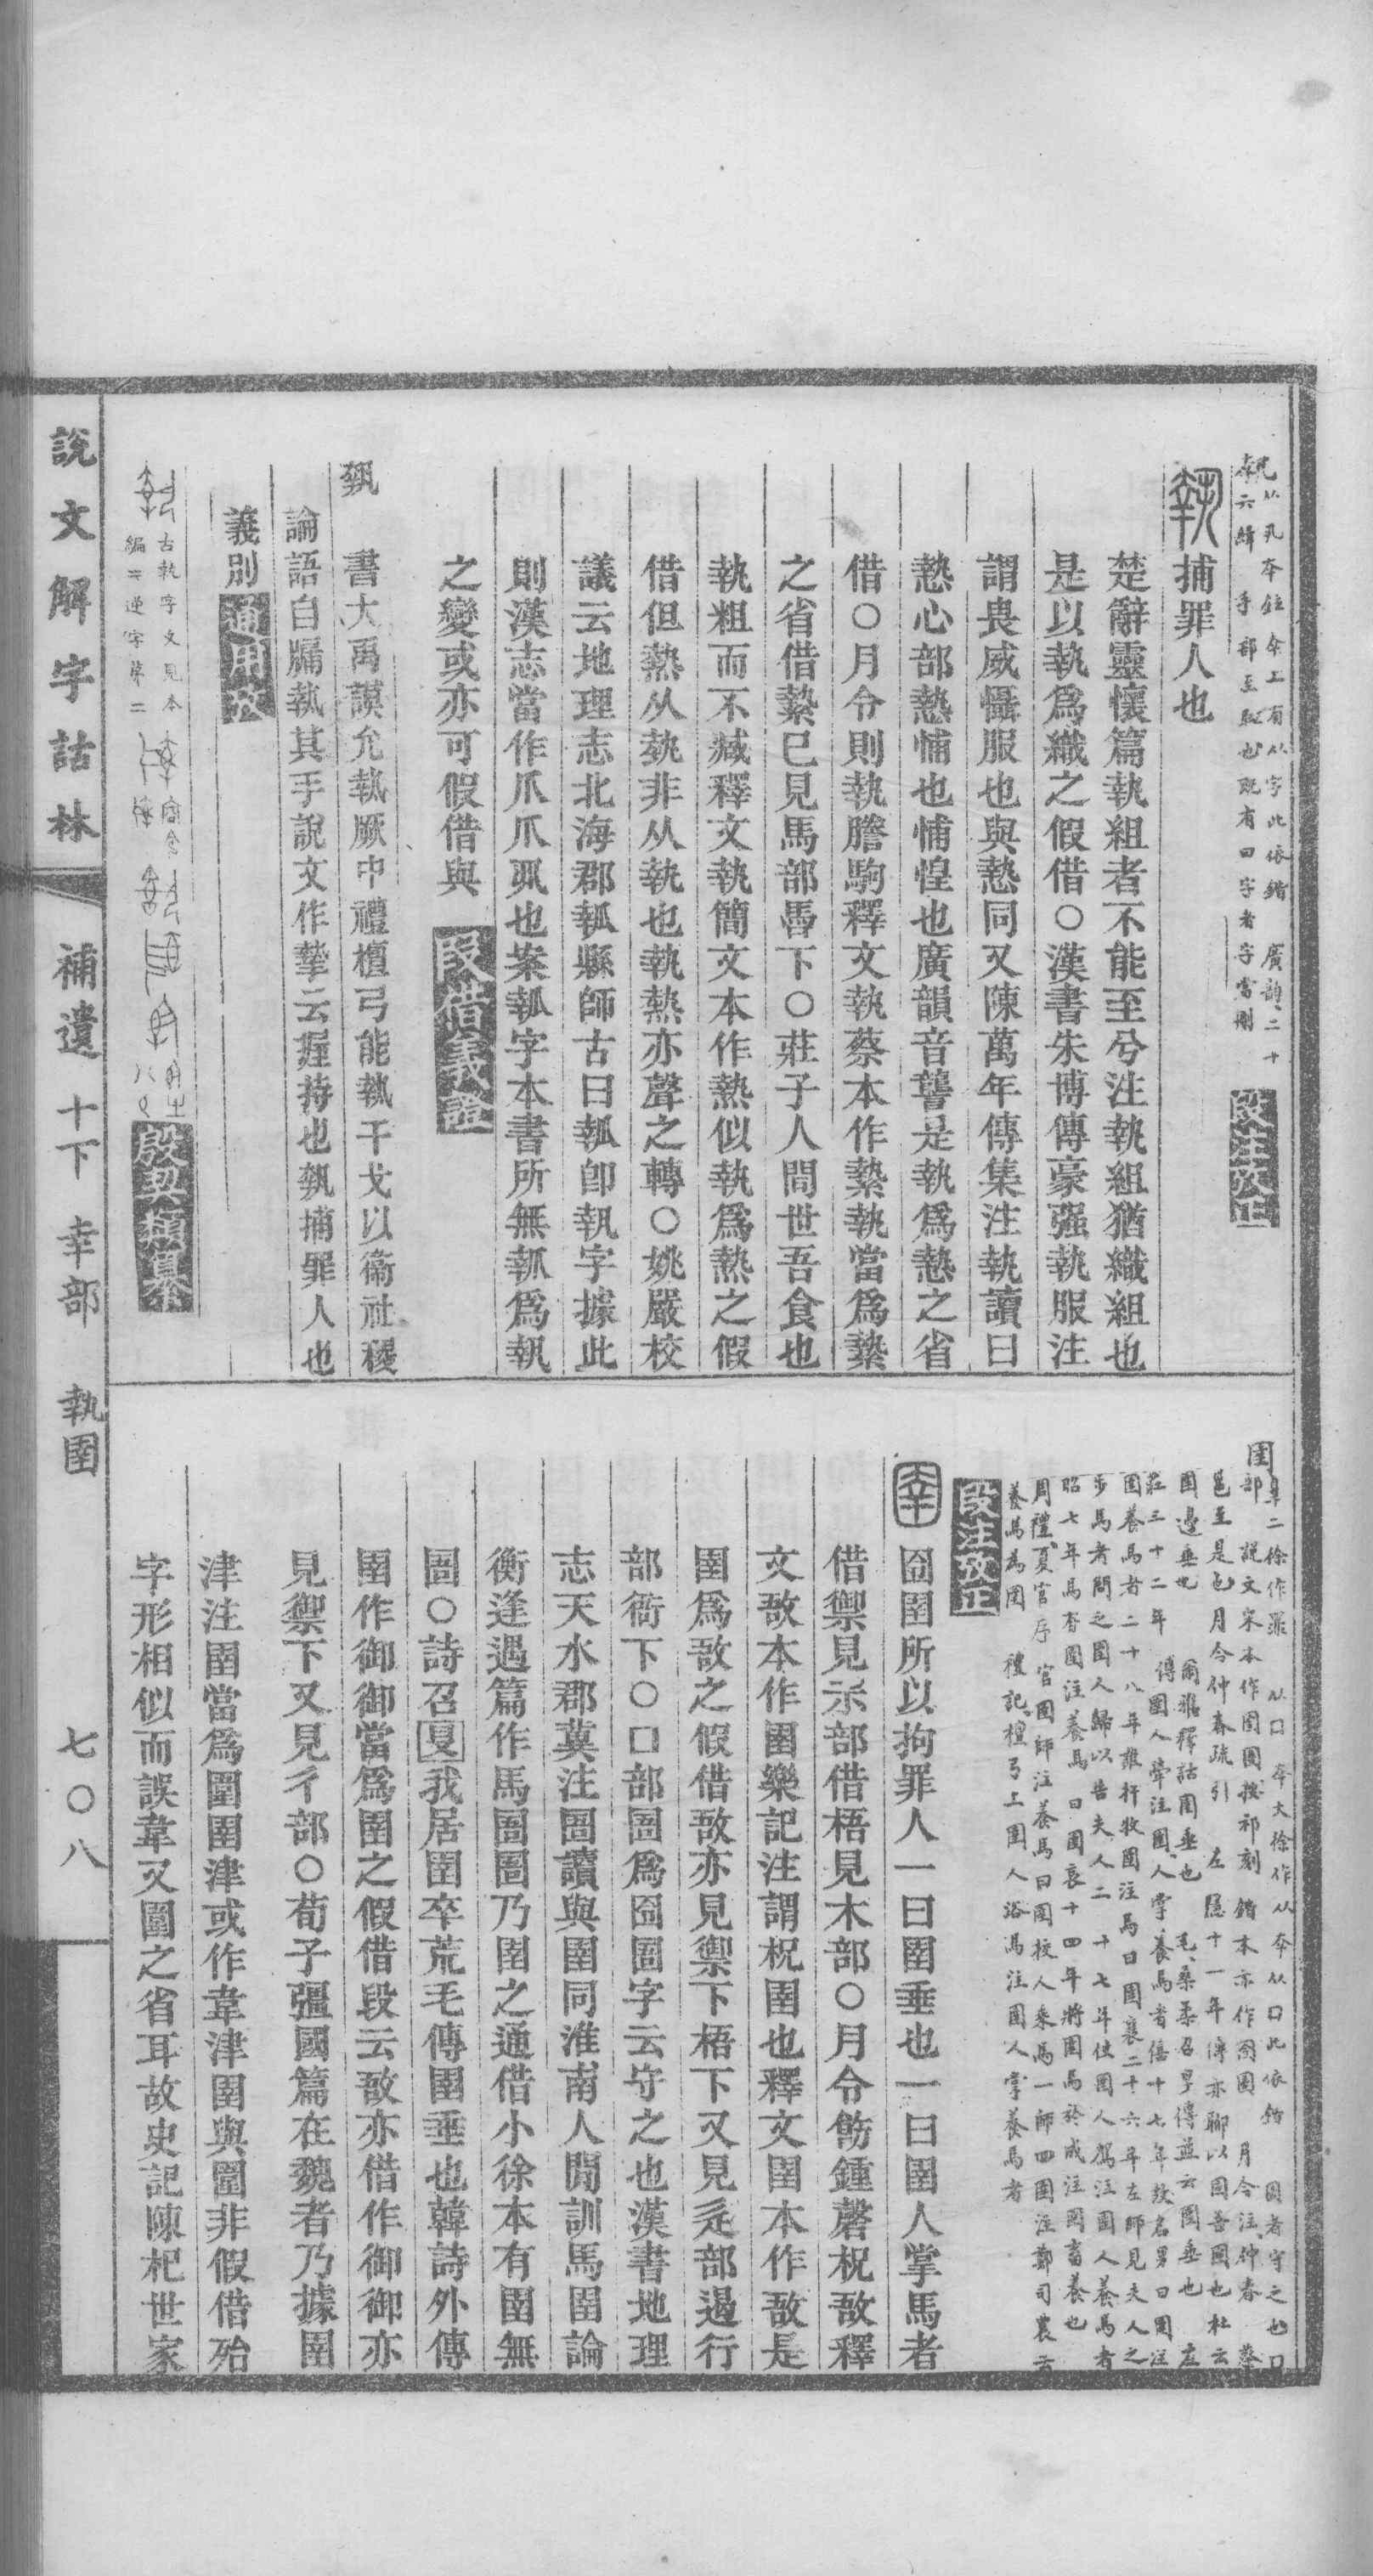 執 从丮㚔㚔亦聲 仝上有从字此依鍇 廣韵二十
六緝 手部至 也既有曰字者字當刪 段注攷正
執 捕罪人也
楚辭靈懷篇執組者不能至兮注執組猶織組也
是以執爲織之假借〇漢書朱博傳豪强執服注
謂畏威懾服也與慹同又陳萬年傳集注執讀曰
慹心部慹悑也悑惶也廣韻音讋是執爲慹之省
借〇月令則執騰駒釋文執蔡本作縶執當爲縶
之省借縶已見馬部馽下〇莊子人間世吾食也
執粗而不臧釋文執簡文本作熱似執爲熱之假
借但熱从埶非从執也執熱亦聲之轉〇姚嚴校
議云地理志北海郡瓡縣師古曰瓡卽執字據此
則漢志當作爪爪丮也案瓡字本書所無瓡爲執
之變或亦可假借與 段借義證
執 書大禹謨允執厥中禮檀弓能執干戈以衞社稷
論語自牖執其手說文作摯云握持也執捕罪人也
義別 通用攷
古執字文見本
編 逆字第二
殷契類纂
圉 㚔二徐作罪 从囗㚔大徐作从㚔从囗此依鍇 圄者守之也囗
部 說文宋本作囹圄按祁刻鍇本亦作囹圄 月令注仲春 蔡
邕至是也月令仲春疏引 左隱十一年傳亦聊以固吾圉也杜云
圉邊垂也 爾雅釋詁圉垂也 毛桑柔召旻傳竝云圉垂也 左
莊三十二年傳圉人犖注圉人掌養馬者僖十七年故名男曰圉注
圉養馬者二十八年誰扞牧圉注馬曰圉襄二十六年左師見夫人之
步馬者問之圉人歸以告夫人二十七年使圉人駕注圉人養馬者
昭七年馬有圉注養馬曰圉哀十四年將圉馬於成注圉畜養也
周禮夏官序官圉師注養馬曰圉校人乘馬一師四圉注鄭司農云
養馬爲圉 禮記檀弓上圉人浴馬注圉人掌養馬者
段注攷正
圉 囹圉所以拘罪人一曰圉垂也一曰圉人掌馬者
借禦見示部借梧見木部〇月令飭鍾磬柷敔釋
文敔本作圉樂記注謂柷圉也釋文圉本作敔是
圉爲敔之假借敔亦見禦下梧下又見辵部遏行
部衙下〇囗部圄爲囹圄字云守之也漢書地理
志天水郡冀注圄讀與圉同淮南人閒訓馬圉論
衡逢遇篇作馬圄圄乃圉之通借小徐本有圉無
圄〇詩召旻我居圉卒荒毛傳圉垂也韓詩外傳
圉作御御當爲圉之假借段云敔亦借作御御亦
見禦下又見彳部〇荀子彊國篇在魏者乃據圉
津注圉當爲圍圉津或作韋津圉與圍非假借殆
字形相似而誤韋又圍之省耳故史記陳杞世家
說文解字詁林
補遺 十下 㚔部 執圉 七〇八